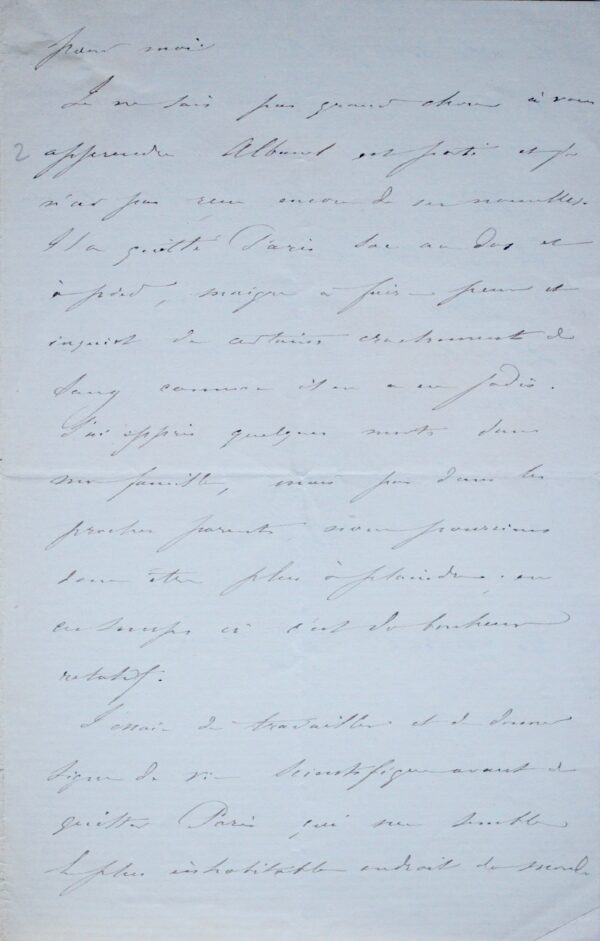 pour moi.
Je ne sais pas grand chose à vous
2 apprendre est parti et je
n'ai pas reçu encore de ses nouvelles.
Il a quitté Paris sac au dos et
à pied, maigre à faire peur et
inquiet de certains crachements de
sang comme il en a eu jadis.
J'ai appris quelques morts dans
ma famille, mais pas dans les
proches parents, nous pourrions
donc être plus à plaindre. en
ce temps ci c'est du bonheur
relatif.
J'essaie de travailler et de donner
signe de vie scientifique avant de
quitter Paris qui me semble
le plus inhabitable endroit du monde